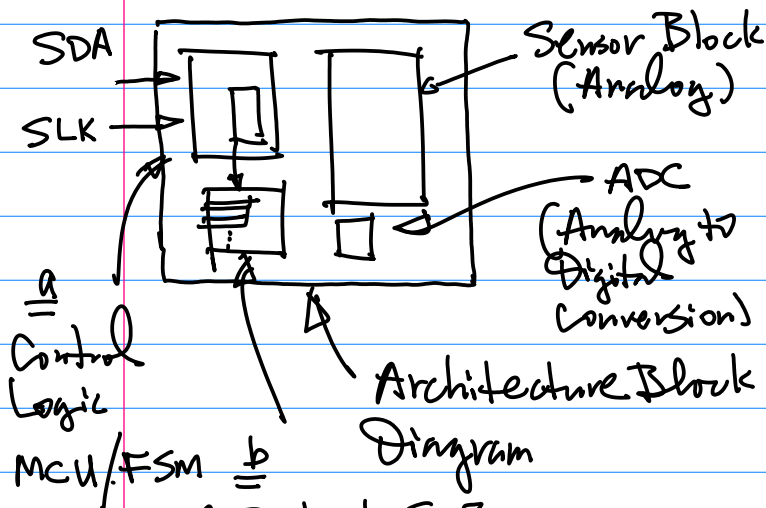 SDA
SLK
Sensor Block
(Analog)
ADC
(Analog to
Digital
Conversion)
a
Control
Logic
MCU/FSM
b
Architecture Block
Diagram